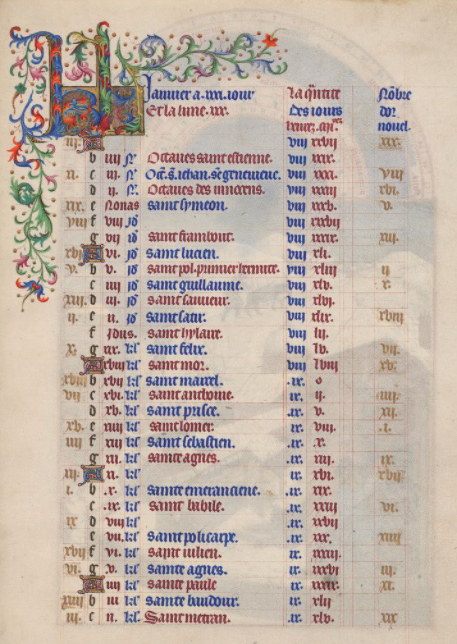 Januier a .xxxi. iour
Et la lune .xxx.
La qũtite des iours
Nõbre dor nouuel.
iii. viii xxvii xix.
b iiii Nͨ Octaues saint estienne. viii xxix.
xi. c iii. Nͨ viii xxxi. viii
d ii. Nͨ Octaues des innocens. viii xxxiii xvi.
xix. e Nonas saint symeon. viii xxxv. v.
viii f viii id viii xxxvii
g vii id saint frambout. viii xxxix. xiii.
xvi vi. id saint lucien. viii xli.
v. b v. id saint pol. premier hermite. viii xliii ii
c iiii id saint guillaume. viii xlv. x.
xiii. d iii. id saint sauueur. viii xlvi.
ii. e ii. id saint satir. viii xlix. xviii
f Idus. saint hylaire. viii lii.
x. g xix. kl saint felix. viii lv. vii.
xviii kl saint mor. viii lviii xv.
xviii b xvii kl saint marcel. .ix. o
vii c xvi. kl saint anthoine. .ix. ii. iiii.
d xv. kl saint prisce. .ix. v. xii.
xv. e xiiii kl saint lomer. .ix. viii. .i.
iiii f xiii kl saint sebastien. .ix. x.
g xii. kl sainte agnes. .ix. xiii. ix.
xii. xi. kl .ix. xvi. xvii
i. b .x. kl sainte emeranciene. .ix. xix.
c .ix. kl saint babile. .ix. xxii vi.
ix d viii kl ix. xxvi
e vii. kl saint policarpe. ix. xxx. xiiii
xvii f vi. kl saint iulien. ix. xxxiii.
vi. g v. kl sainte agnes. ix. xxxvi iii.
iiii kl sainte paule ix. xxxix. xi.
xiiii b iii kl sainte baudour. ix. xlii
iii. c ii. kl Saint metran. ix. xlv. xix